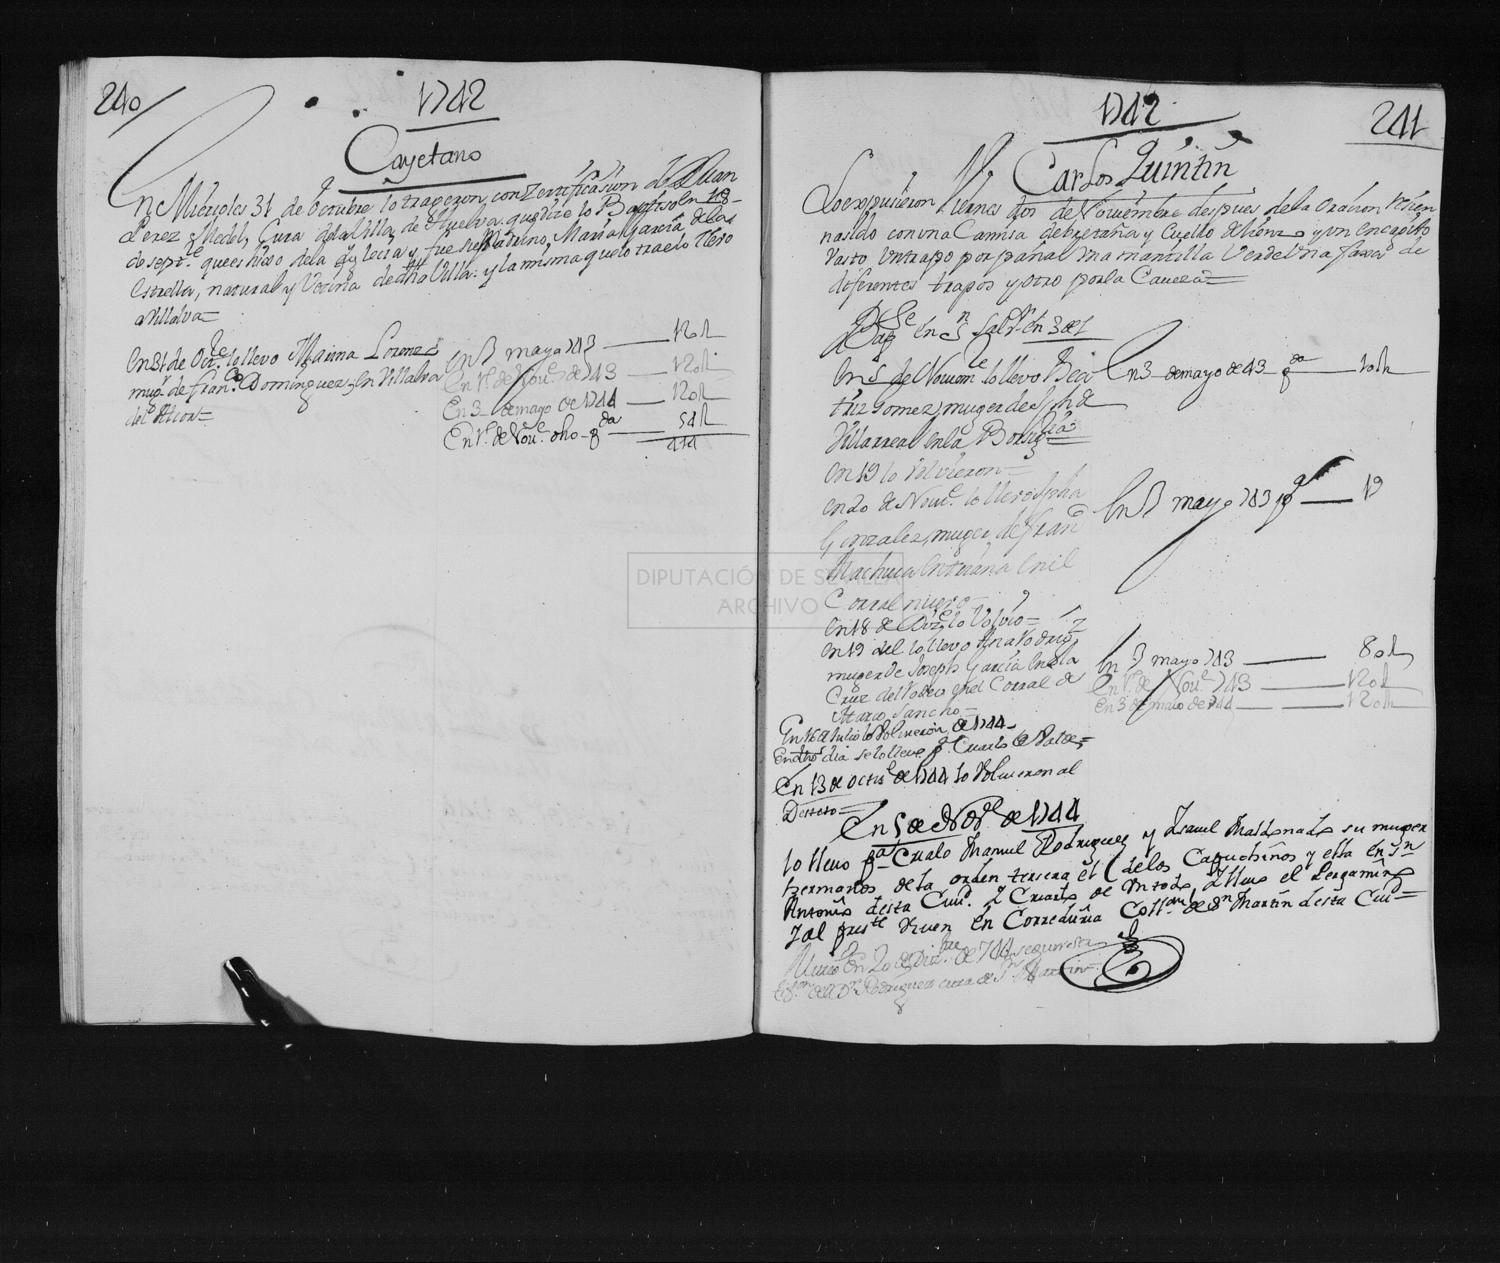 240
1742
Cayetano
En Miercoles 31 de octubre lo trageron, con Zertificasion de D. Juan
Perez y Medel, Cura de la Villa de Huelva que dize lo Baptiso en 18
de sept.e que es hixo de la Yglecia y fue su Padrino, Maria Garcia de las
Estrella, natural y Vecina de dha Villa: y la misma que lo trae lo llevo
a Villalva
En 31 de Oct.e lo llevo Marina Lorenzo
mug.r de fran.co Dominguez, en Villalva
del Alcor
En 3 mayo 743 — 12 d
En 1.º de Nov.e de 743 — 120 d
En 3 de mayo de 1744 — 120 d
En 1.º de Nov.e dho — 54 d
414
1742
241
Carlos Quintin
Lo expusieron Viernes dos de Noviembre despues de la Oracion resien
nasido con una Camisa de bretaña y Cuello de lienzo y un encapillo
vasto un trapo por pañal una mantilla Verde Una faxa de
diferentes trapos y otro por la Cavesa
Bap en S.n Salv.r en 3 del
En 5 de Noviem.e lo llevo Bea
triz Gomez, muger de
Villarreal en la
En 3 de mayo de 43
En 19 lo volvieron
en 20 de Nov.e lo llevo
Gonzalez, muger de fran.co
Machuca en triana en el
Corral nuevo
En 3 mayo 743 — 19
en 18 de Diz.e lo Volvio
en 19 del lo llevo Ana Rodrig.z
muger de Joseph Garcia en la
Cruz del Rodeo en el Corral de
Sancho
En 3 mayo 743 — 80 d
En 1.º de Nov.e 743 — 120 d
en 3 de maio de 744 — 120 d
En 16 de Julio lo Volvieron de 1744
En dho dia se lo llevo p.a Criarlo de Valde
En 13 de oct.e de 1744 lo Volvieron al
Desteto
En 5 de Nov.e de 1744
lo llevo p.a Criarlo Manuel Rodriguez y Isavel Maldonado su muger
hermanos de la orden tersera el de los Capuchinos y ella en S.n
Antonio desta Ciud.d y Criarlo de un todo, y lleva el Pergamino
y al pres.te viven en Correduria Coll.on de S.n Martin desta Ciud
Murio En 20 de Diz.bre de 744 segun
Rodriguez cura de S.n Martin
DIPUTACIÓN DE SEVILLA
ARCHIVO